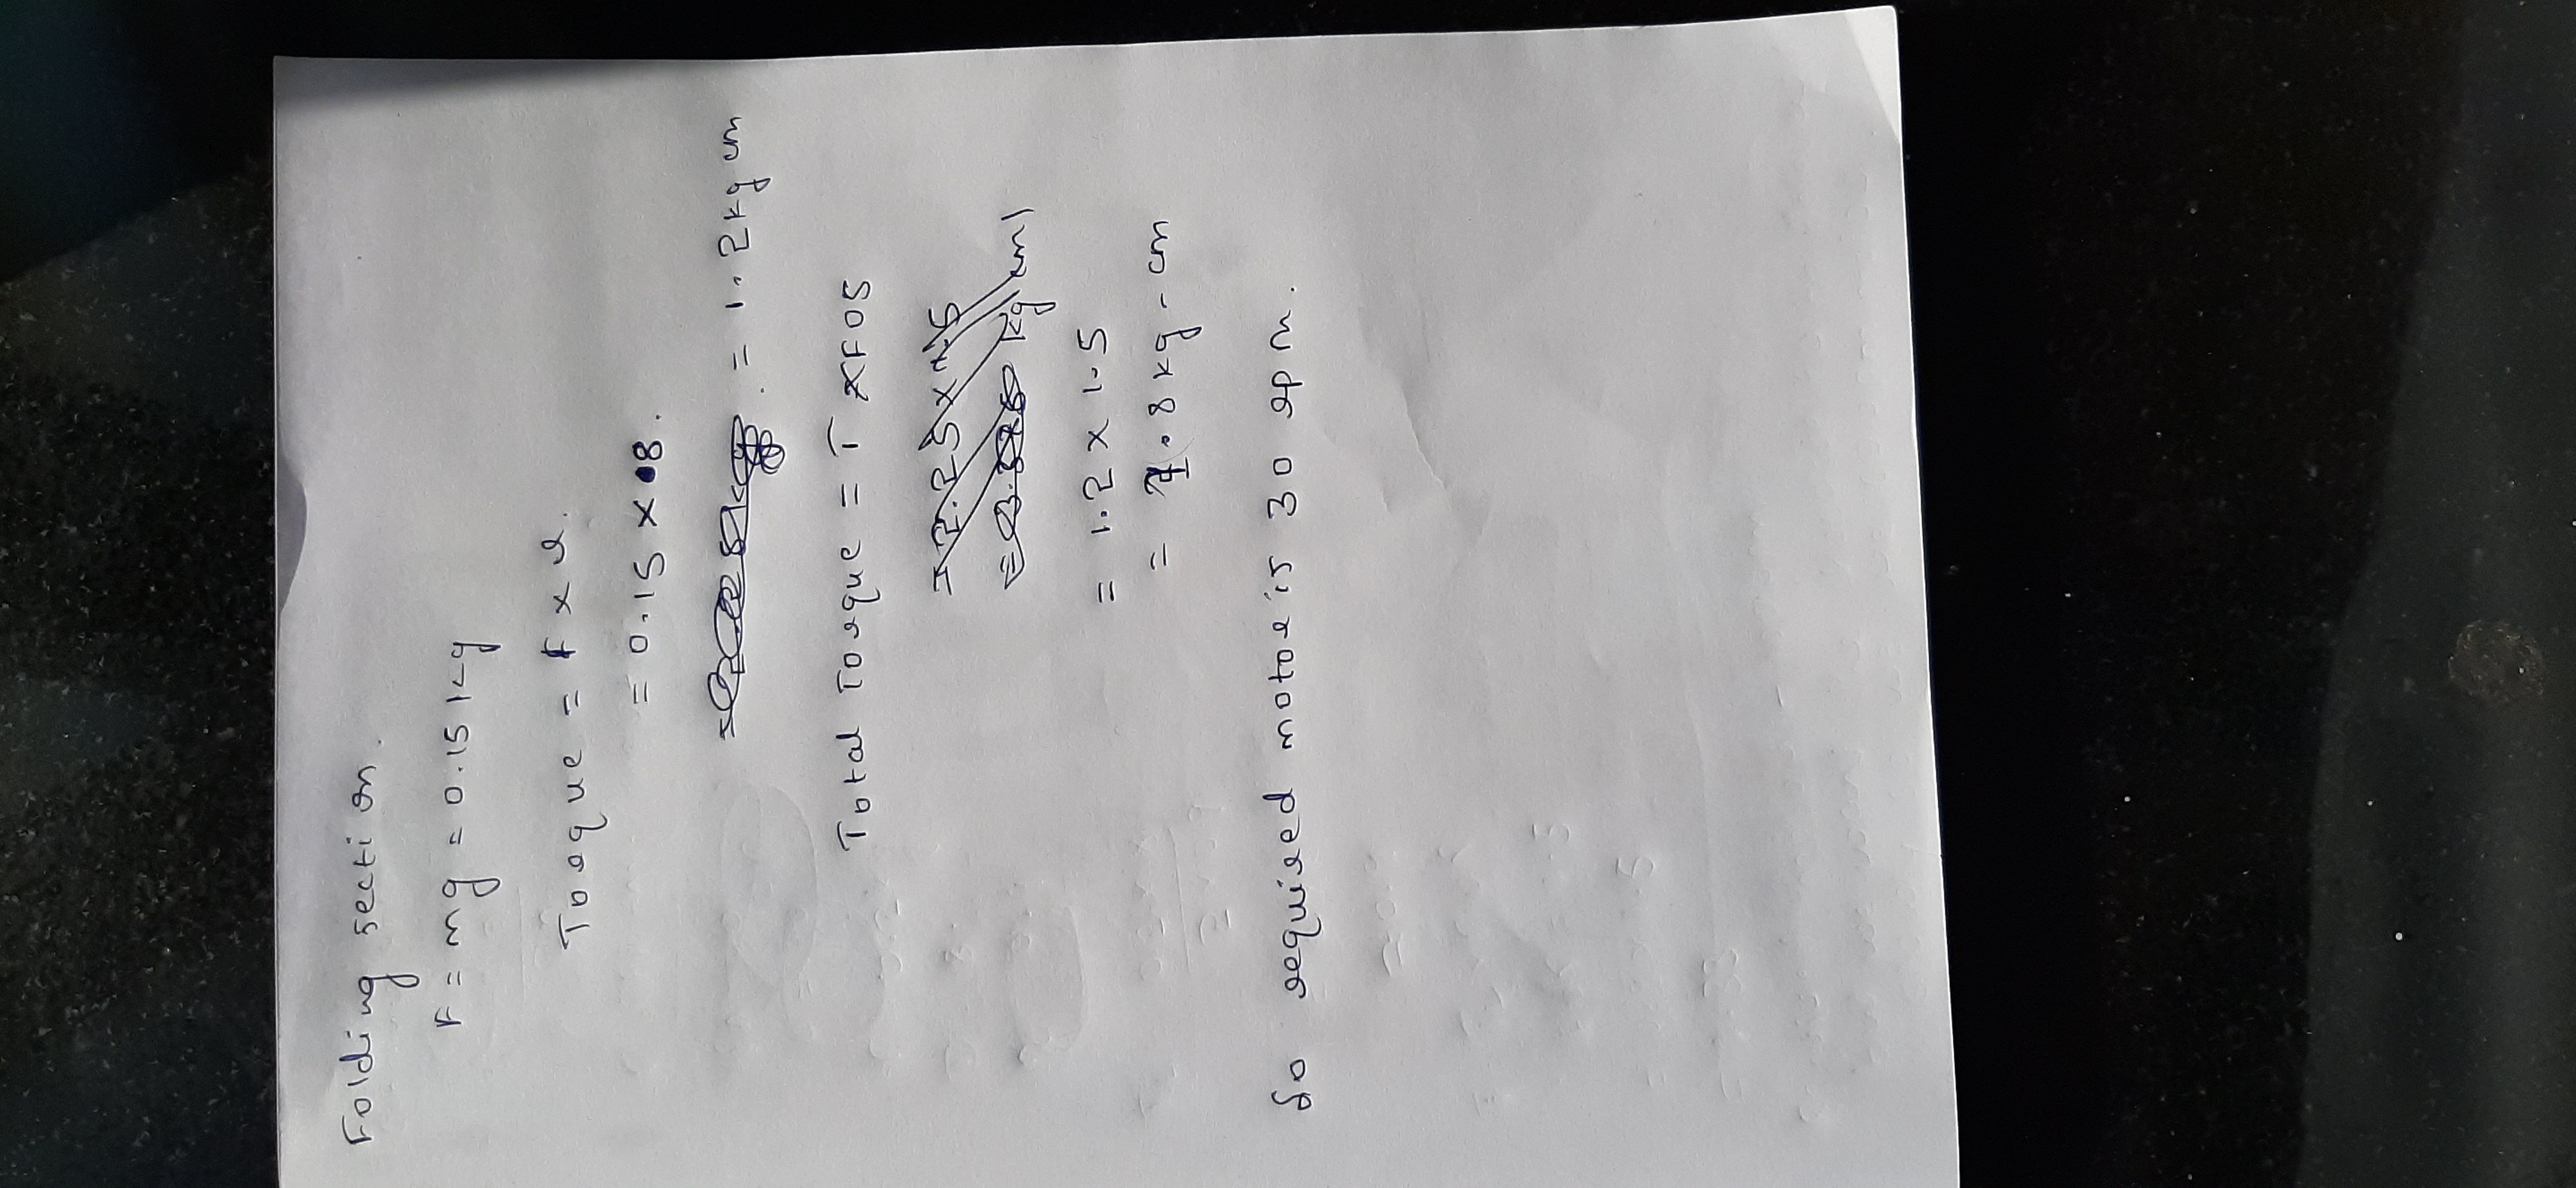 Folding section.
F = mg = 0.15 kg
Torque = F x r.
= 0.15 x 8.
= 1.2 kg cm
Total Torque = T x FOS
= 2.25 x 1.5
kg cm
= 1.2 x 1.5
= 1.8 kg - cm
So required motor is 30 rpm.